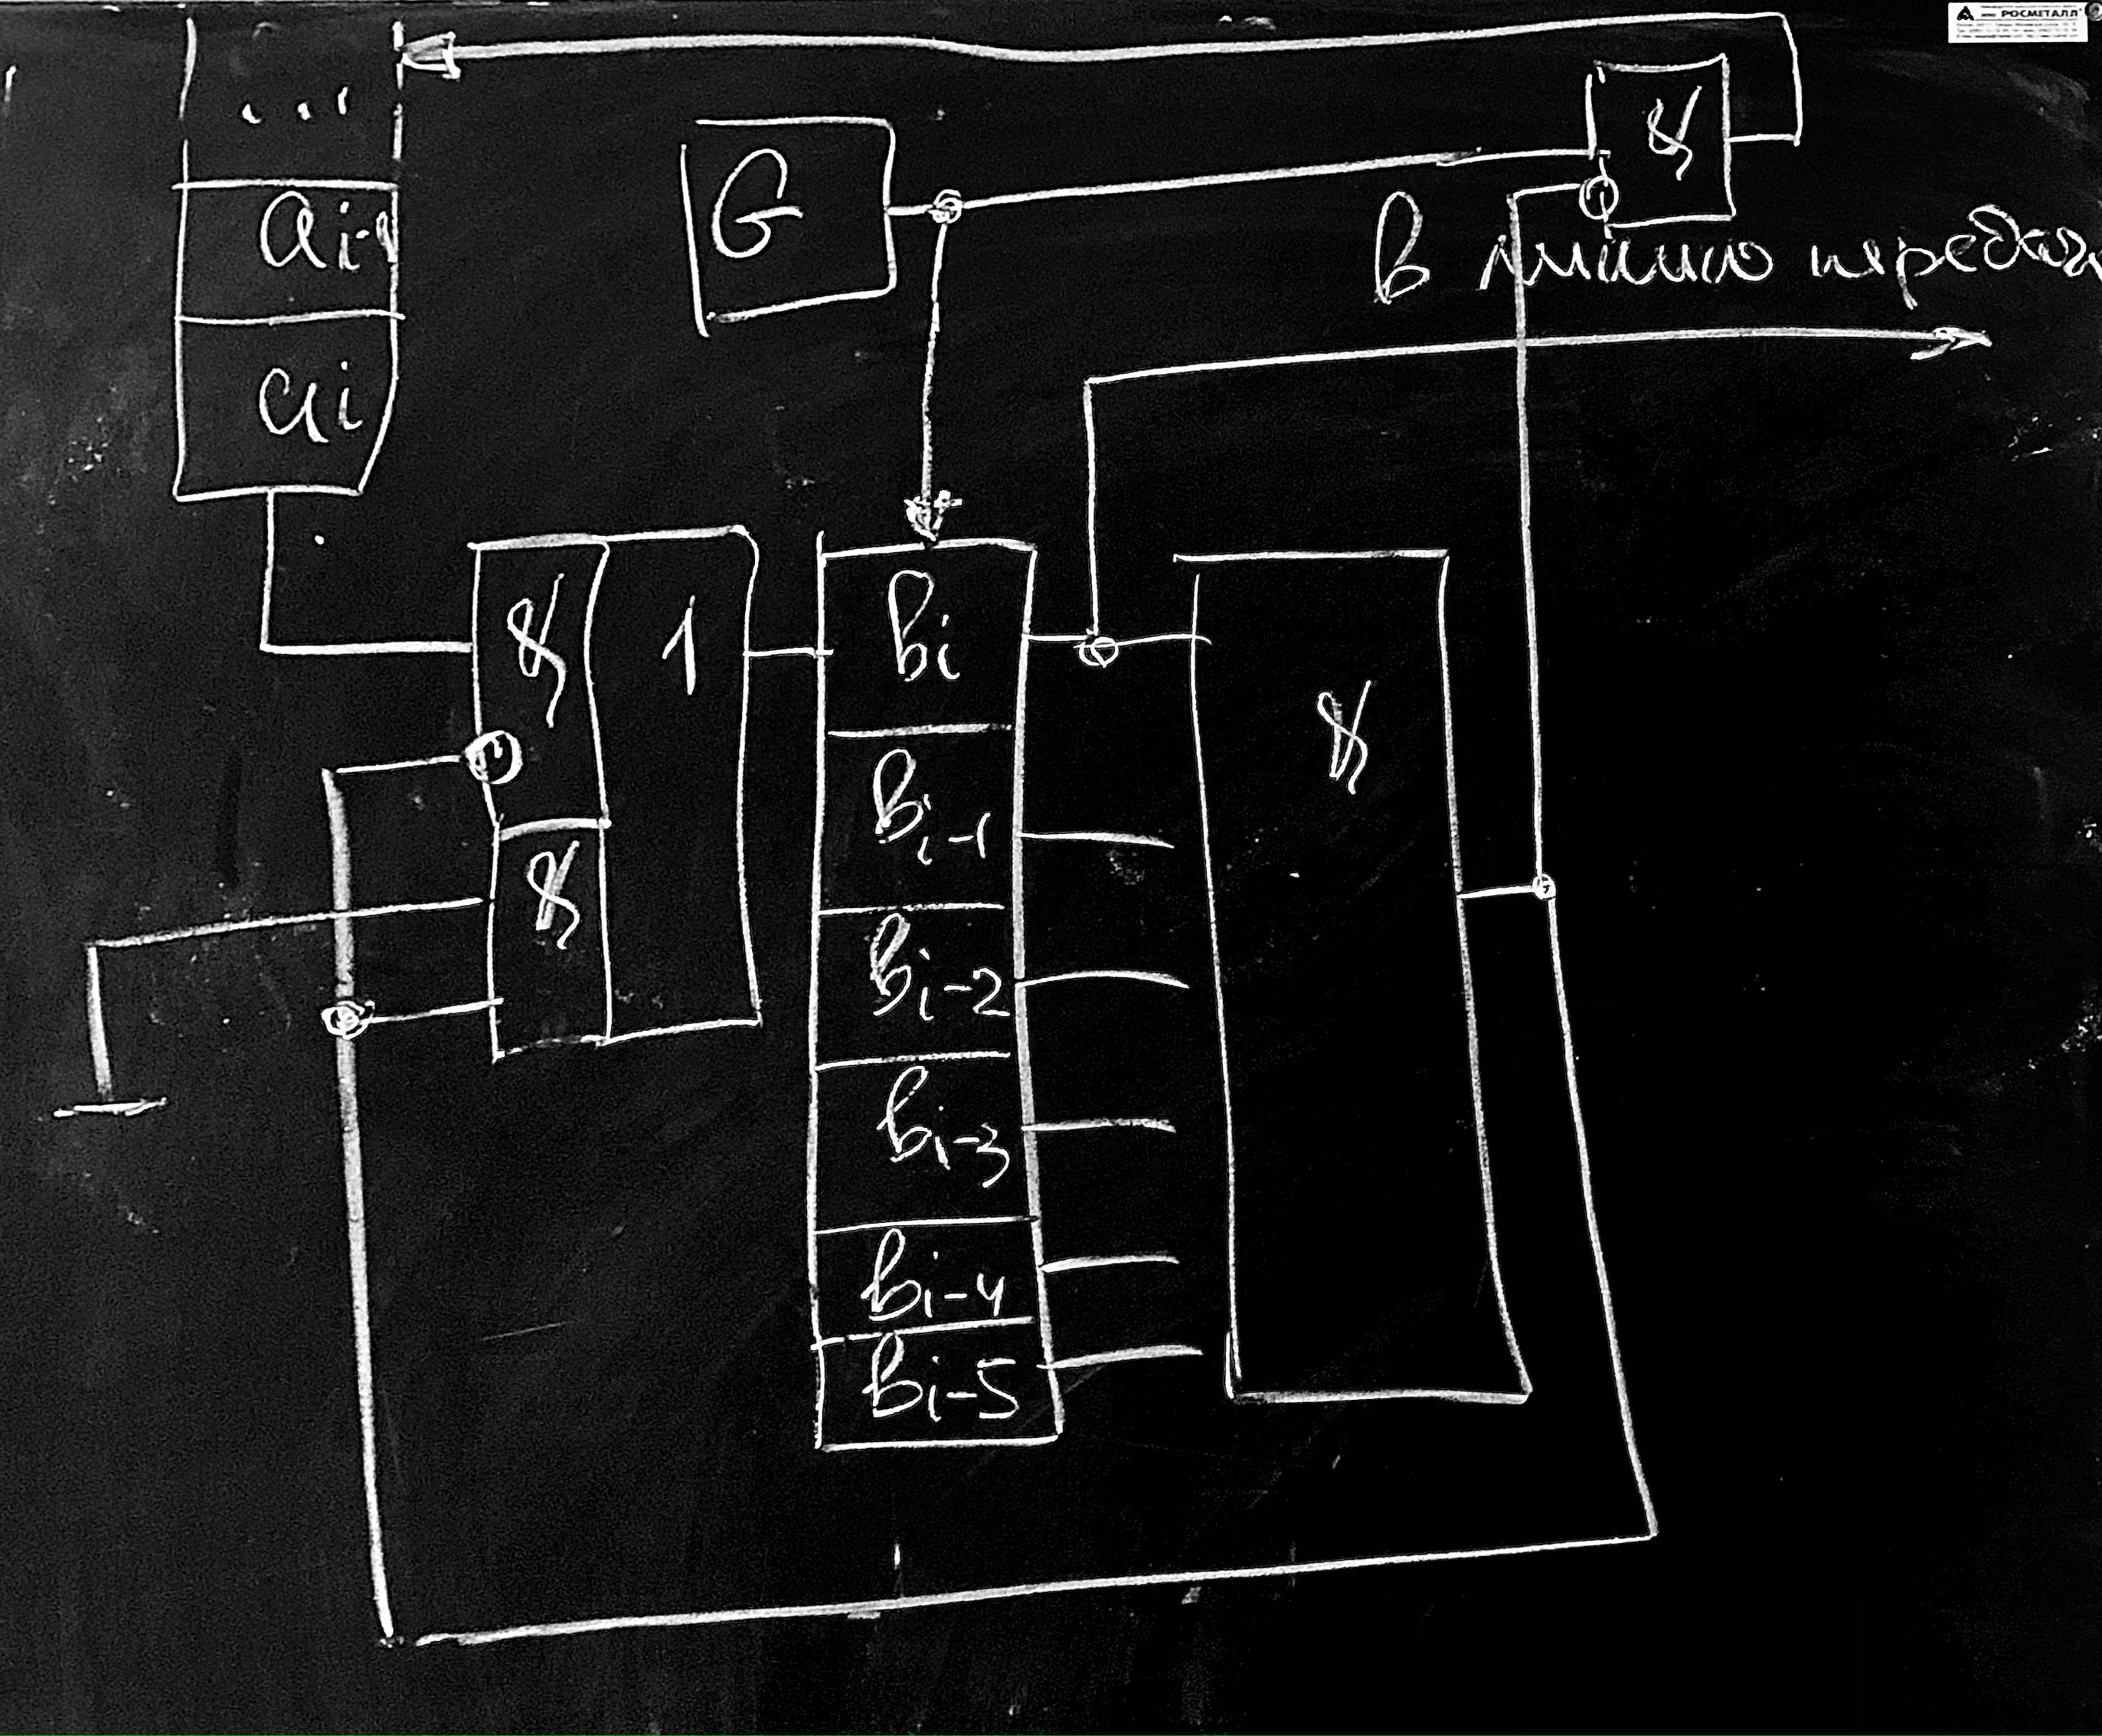 РОСМЕТАЛЛ
...
a i-1
G
&
В линию передачи
a i
&
1
b i
&
b i-1
&
b i-2
b i-3
b i-4
b i-5